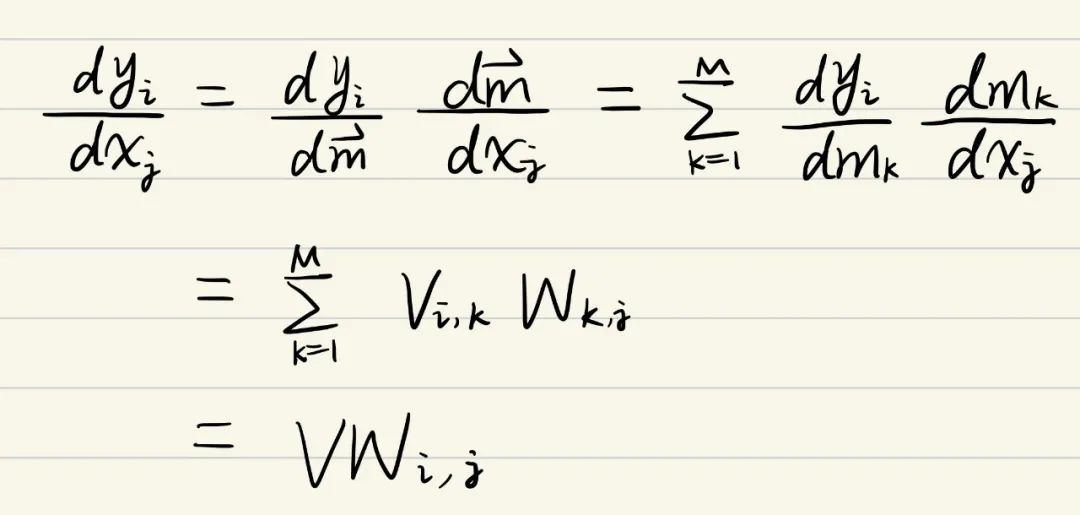 dy_i/dx_j = dy_i/dm⃗ dm⃗/dx_j = ∑_{k=1}^{M} dy_i/dm_k dm_k/dx_j
= ∑_{k=1}^{M} V_{i,k} W_{k,j}
= VW_{i,j}